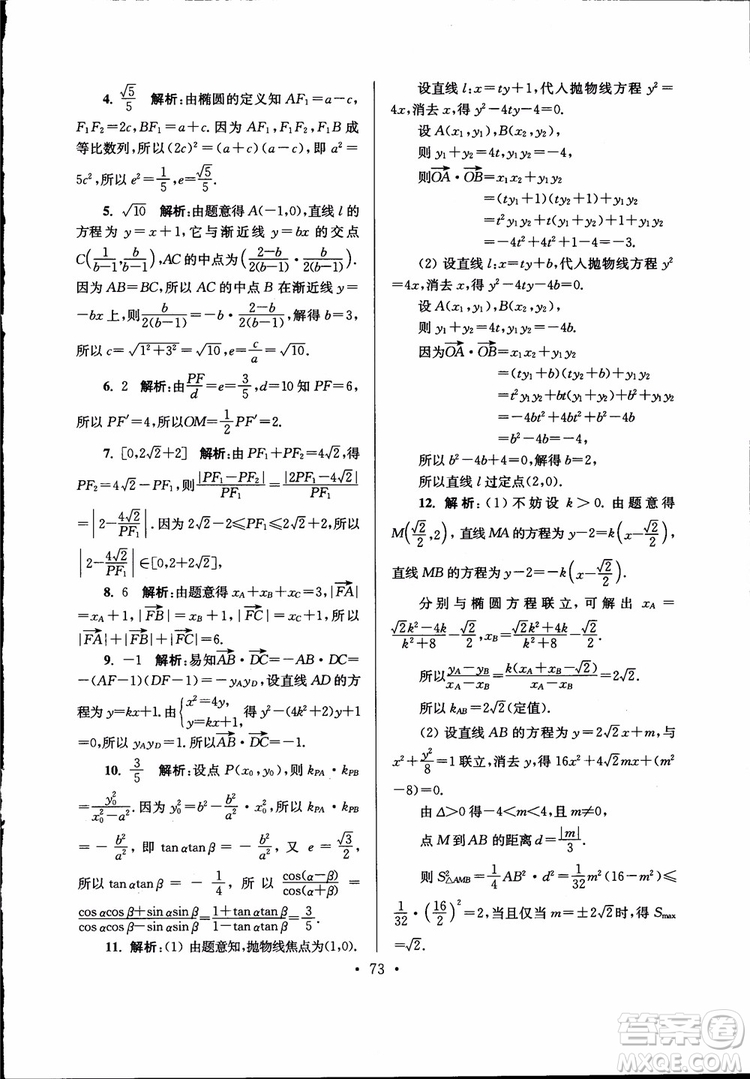 4. √5/5 解析:由椭圆的定义知 AF₁=a-c,
F₁F₂=2c,BF₁=a+c. 因为 AF₁,F₁F₂,F₁B 成
等比数列,所以(2c)²=(a+c)(a-c),即 a²=
5c²,所以 e²=1/5,e=√5/5.
5. √10 解析:由题意得 A(-1,0),直线 l 的
方程为 y=x+1,它与渐近线 y=bx 的交点
C(1/(b-1),b/(b-1)),AC 的中点为((2-b)/(2(b-1))·b/(2(b-1))).
因为 AB=BC,所以 AC 的中点 B 在渐近线 y=
-bx 上,则b/(2(b-1))=-b·(2-b)/(2(b-1)),解得 b=3,
所以 c=√(1²+3²)=√10,e=c/a=√10.
6. 2 解析:由PF/d=e=3/5,d=10 知 PF=6,
所以 PF′=4,所以OM=1/2 PF′=2.
7. [0,2√2+2] 解析:由 PF₁+PF₂=4√2,得
PF₂=4√2-PF₁,则|PF₁-PF₂|/PF₁=|2PF₁-4√2|/PF₁=
|2-4√2/PF₁|.因为 2√2-2≤PF₁≤2√2+2,所以
|2-4√2/PF₁|∈[0,2√2+2].
8. 6 解析:由题意得 x_A+x_B+x_C=3,|FA→|
=x_A+1,|FB→|=x_B+1,|FC→|=x_C+1,所以
|FA→|+|FB→|+|FC→|=6.
9. -1 解析:易知AB→·DC→=-AB·DC=
-(AF-1)(DF-1)=-y_Ay_D,设直线 AD 的方
程为 y=kx+1,由{x²=4y, y=kx+1,得 y²-(4k²+2)y+1
=0,所以 y_Ay_D=1.所以AB→·DC→=-1.
10. 3/5 解析:设点 P(x₀,y₀),则 k_PA·k_PB
=y₀²/(x₀²-a²).因为 y₀²=b²-b²/a²·x₀²,所以 k_PA·k_PB
=-b²/a²,即 tanαtanβ=-b²/a²,又 e=√3/2,
所以 tanαtanβ=-1/4,所以 cos(α-β)/cos(α+β)=
(cosαcosβ+sinαsinβ)/(cosαcosβ-sinαsinβ)=(1+tanαtanβ)/(1-tanαtanβ)=3/5.
11. 解析:(1) 由题意知,抛物线焦点为(1,0).
设直线 l:x=ty+1,代入抛物线方程 y²=
4x,消去 x,得 y²-4ty-4=0.
设 A(x₁,y₁),B(x₂,y₂),
则 y₁+y₂=4t,y₁y₂=-4,
则OA→·OB→=x₁x₂+y₁y₂
=(ty₁+1)(ty₂+1)+y₁y₂
=t²y₁y₂+t(y₁+y₂)+1+y₁y₂
=-4t²+4t²+1-4=-3.
(2) 设直线 l:x=ty+b,代入抛物线方程 y²
=4x,消去 x,得 y²-4ty-4b=0.
设 A(x₁,y₁),B(x₂,y₂),
则 y₁+y₂=4t,y₁y₂=-4b.
因为OA→·OB→=x₁x₂+y₁y₂
=(ty₁+b)(ty₂+b)+y₁y₂
=t²y₁y₂+bt(y₁+y₂)+b²+y₁y₂
=-4bt²+4bt²+b²-4b
=b²-4b=-4,
所以 b²-4b+4=0,解得 b=2,
所以直线 l 过定点(2,0).
12. 解析:(1) 不妨设 k>0. 由题意得
M(√2/2,2),直线 MA 的方程为 y-2=k(x-√2/2),
直线 MB 的方程为 y-2=-k(x-√2/2).
分别与椭圆方程联立,可解出 x_A=
(√2k²-4k)/(k²+8)-√2/2,x_B=(√2k²+4k)/(k²+8)-√2/2.
所以(y_A-y_B)/(x_A-x_B)=k(x_A+x_B)/(x_A-x_B)=2√2.
所以 k_AB=2√2(定值).
(2) 设直线 AB 的方程为 y=2√2x+m,与
x²+y²/8=1 联立,消去 y,得 16x²+4√2mx+(m²
-8)=0.
由 Δ>0 得-4<m<4,且 m≠0.
点 M 到 AB 的距离 d=|m|/3.
则 S²△AMB=1/4 AB²·d²=1/32 m²(16-m²)≤
1/32·(16/2)²=2,当且仅当 m=±2√2时,得 S_max
=√2.
·73·
答案圈
MXQE.COM